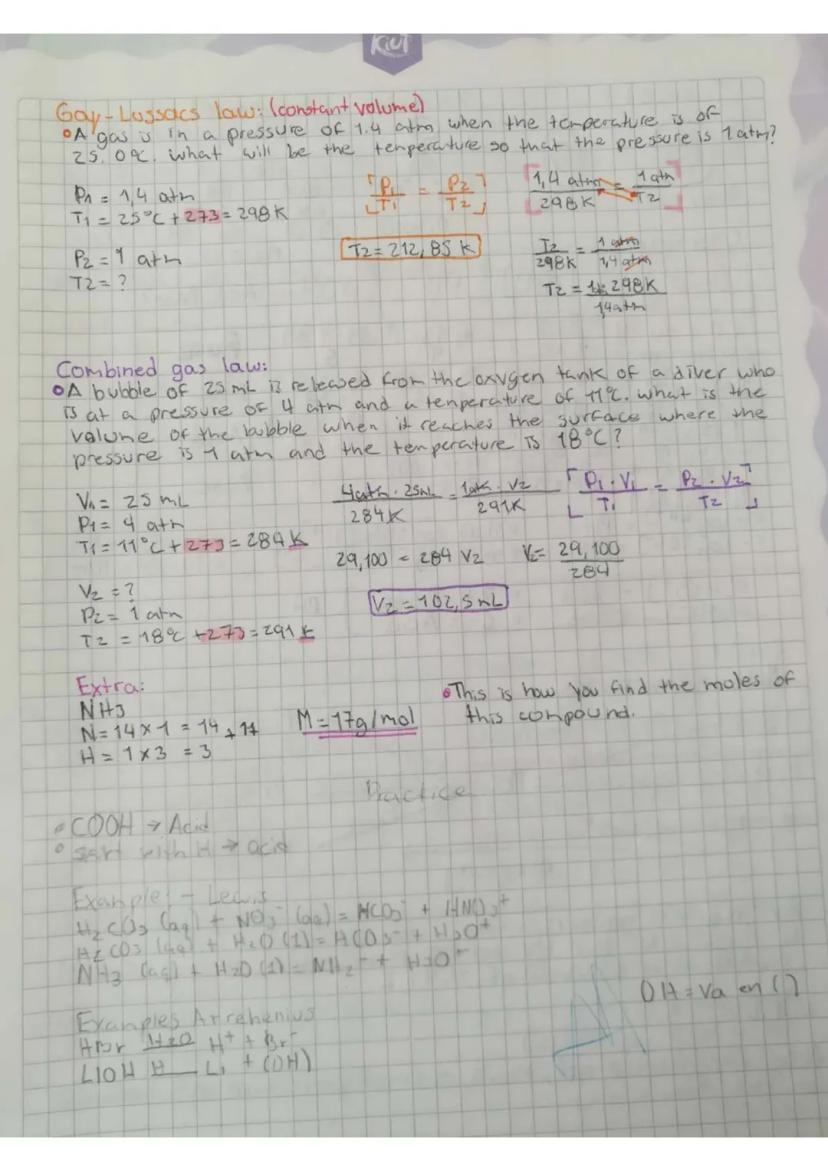 KIUT
Gay-Lussacs law: (constant volume)
A gas is in a pressure of 1.4 atm when the temperature is of
25.0°C. What will be the temperature so that the pressure is 1 atm?
P1 = 1,4 atm
T1 = 25°C + 273 = 298 K
P2 = 1 atm
T2 = ?
P1/T1 = P2/T2
T2 = 212,85 K
1,4 atm/298K = 1 atm/T2
T2/298K = 1 atm/1,4 atm
T2 = 298K
14atm
Combined gas law:
A bubble of 25 mL is released from the oxygen tank of a diver who
is at a pressure of 4 atm and a temperature of 11°C. what is the
volume of the bubble when it reaches the surface where the
pressure is 1 atm and the temperature is 18°C?
V1 = 25 mL
P1 = 4 atm
T1 = 11°C + 273 = 284 K
V2 = ?
P2 = 1 atm
T2 = 18°C + 273 = 291 K
4atm · 25mL/284K = 1atm · V2/291K
P1 · V1/T1 = P2 · V2/T2
29,100 = 284 V2
V2 = 29,100/284
V2 = 102,5 mL
Extra:
NH3
N = 14 x 1 = 14 + 17
H = 1 x 3 = 3
M = 17g/mol
This is how you find the moles of
this compound.
Practice
COOH → Acid
sart with H → acid
Example: - Lewis
H2CO3 (aq) + NO3⁻ (aq) = HCO3⁻ + HNO3⁺
H2CO3 (aq) + H2O (l) = HCO3⁻ + H3O⁺
NH3 (aq) + H2O (l) = NH2⁻ + H3O⁻
OH = va en ()
Examples Arrehenius
HBr H2O H⁺ + Br⁻
LIOH H Li + (OH)